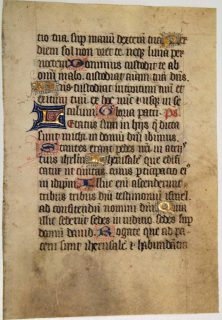 tio tua sup manū dexterā tuā Per
diem sol non uret te neq; luna per
noctem Dominus custodit te ab
omni malo custodiat animā tuā dn̄s
Dn̄s custodiat introitum tuū et
exitum tuū ex hoc nūc et usq; in se
culum Gloria patri
Letatus sum in hijs q̄ dicta
sunt michi in domū dn̄i ibimus
Stantes erant pedes nr̄i in a
triis Iherusalē que edifi
catur ut civitas cuius pticipatio eiꝰ
in idipm̄ Illuc eni ascenderunt
tribus tribus dn̄i testimoniū isrl
ad confitendū nomini dn̄i Quia
illic sederūt sedes in iudicio sedes sup
domū david Rogate que ad pa
cem sunt iherusalē et habundātia